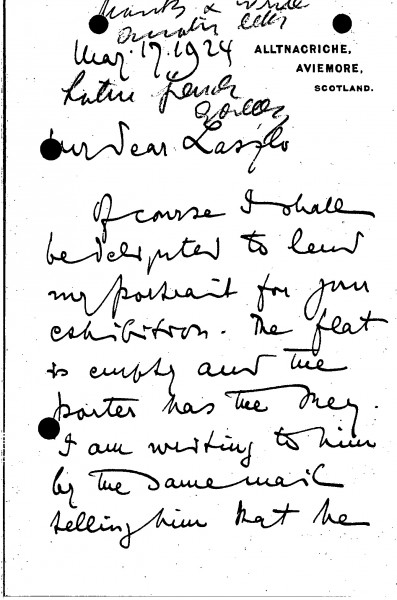 thanks & write
another letter
May 17. 1924
ALLTNACRICHE,
AVIEMORE,
SCOTLAND.
Latin French
My dear László
Of course I shall
be delighted to lend
my portrait for your
exhibition. The flat
is empty and the
porter has the key.
I am writing to him
by the same mail
telling him that he